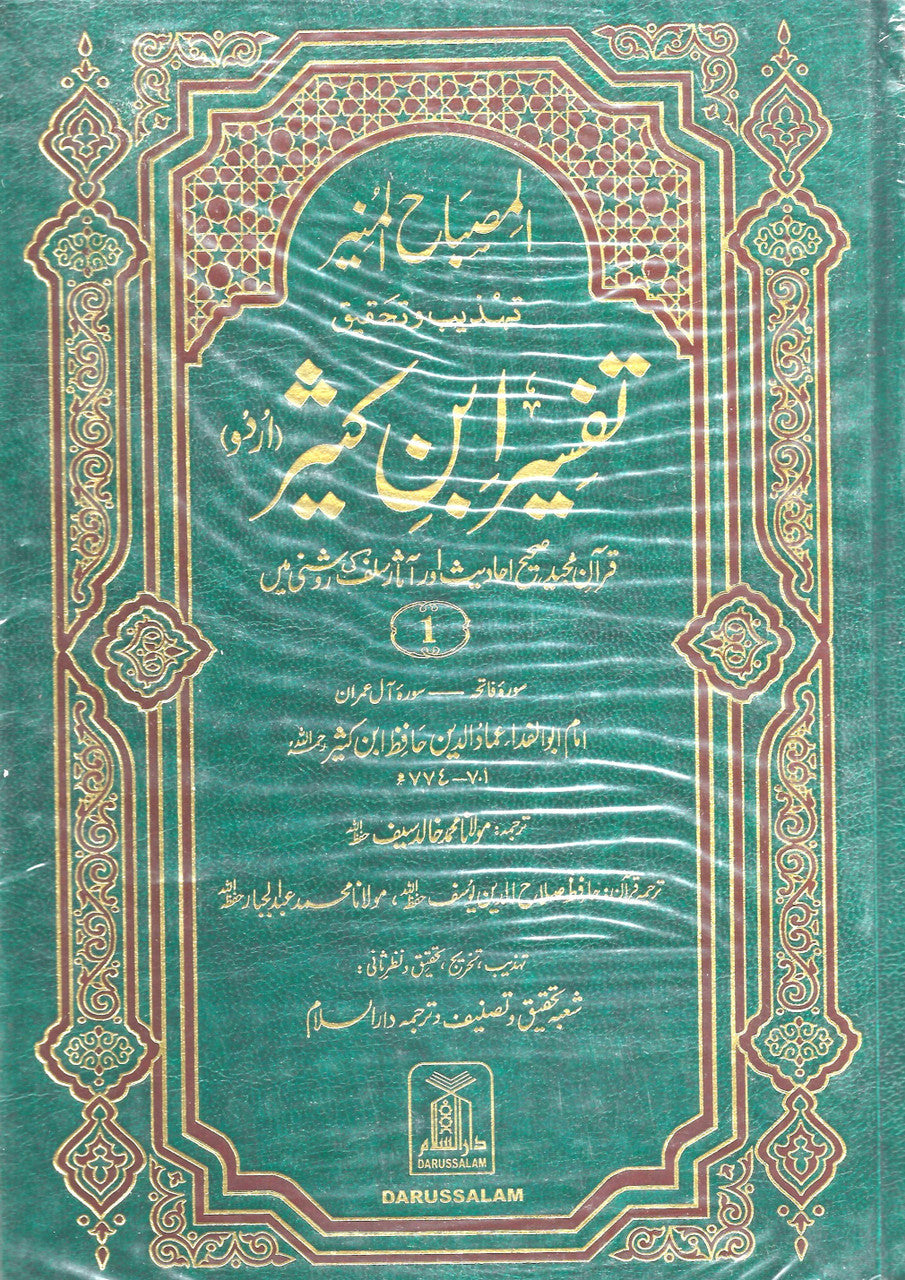 المِصباح المُنیر
تہذیب و تحقیق
تفسیر ابنِ کثیر (اُردُو)
قرآن مجید، صحیح احادیث اور آثارِ سلف کی روشنی میں
1
سورۂ فاتحہ — سورۂ آل عمران
امام ابو الفداء عماد الدین حافظ ابن کثیر رحمہ اللہ
٧٠١-٧٧٤ھ
ترجمہ: مولانا محمد خالد سیف حفظہ اللہ
ترجمہ قرآن: حافظ صلاح الدین یوسف حفظہ اللہ، مولانا محمد عبدالجبار حفظہ اللہ
تہذیب، تخریج، تحقیق و نظر ثانی:
شعبہ تحقیق و تصنیف و ترجمہ دارالسلام
دارالسلام
DARUSSALAM
DARUSSALAM